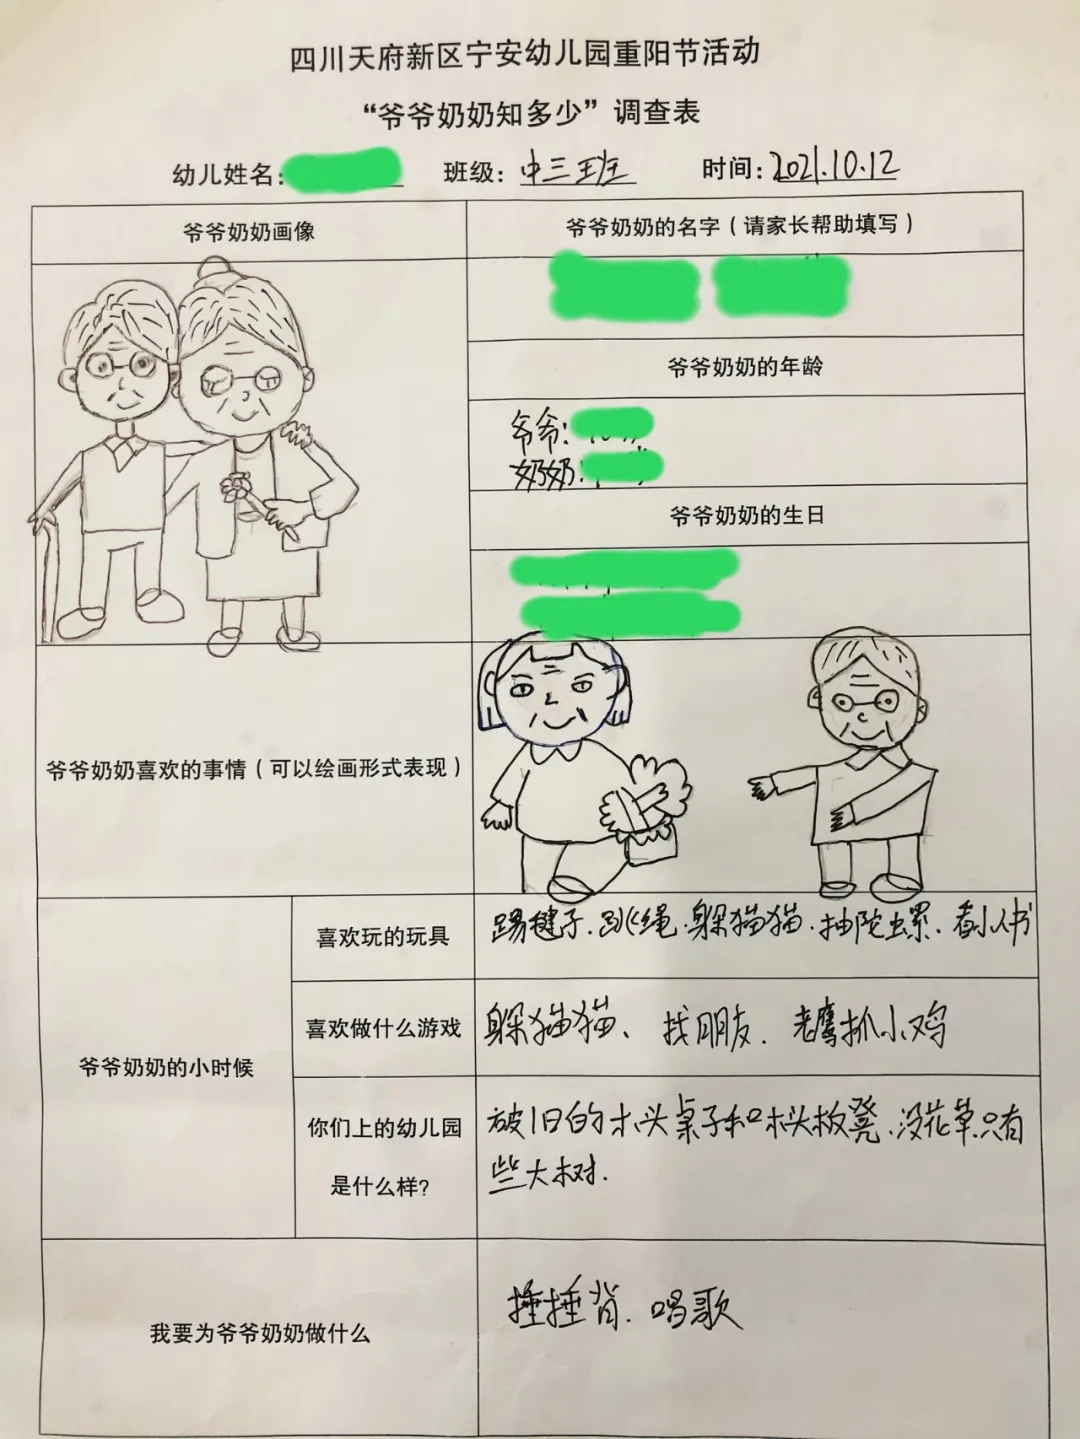 四川天府新区宁安幼儿园重阳节活动
“爷爷奶奶知多少”调查表
幼儿姓名: 班级: 中三班 时间: 2021.10.12
爷爷奶奶画像
爷爷奶奶的名字（请家长帮助填写）
爷爷奶奶的年龄
爷爷:
奶奶:
爷爷奶奶的生日
爷爷奶奶喜欢的事情（可以绘画形式表现）
爷爷奶奶的小时候
喜欢玩的玩具
踢毽子.跳绳.躲猫猫.抽陀螺.看小人书
喜欢做什么游戏
躲猫猫、找朋友.老鹰抓小鸡
你们上的幼儿园
是什么样?
破旧的木头桌子和木头板凳.没花草.只有
些大树.
我要为爷爷奶奶做什么
捶捶背.唱歌